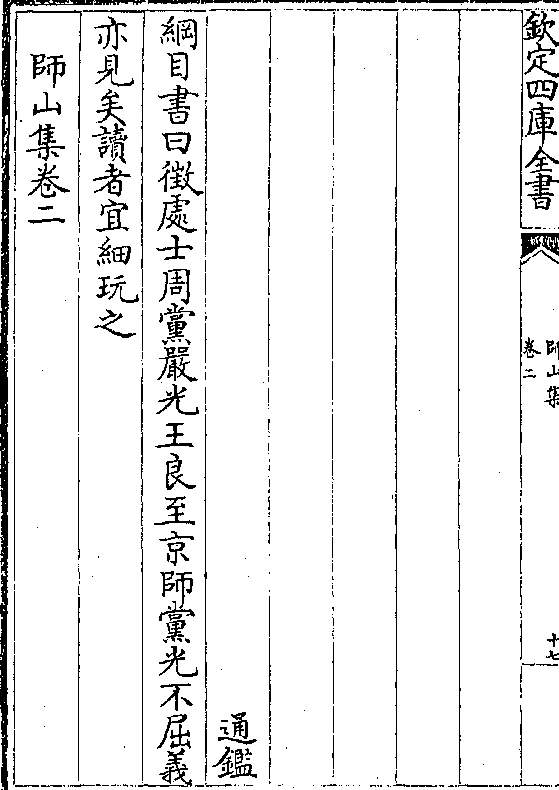 欽定四庫全書
師山集
卷二
十七
通鑑
綱目書曰徴處士周黨嚴光王良至京師黨光不屈義
亦見矣讀者宜細玩之
師山集卷二